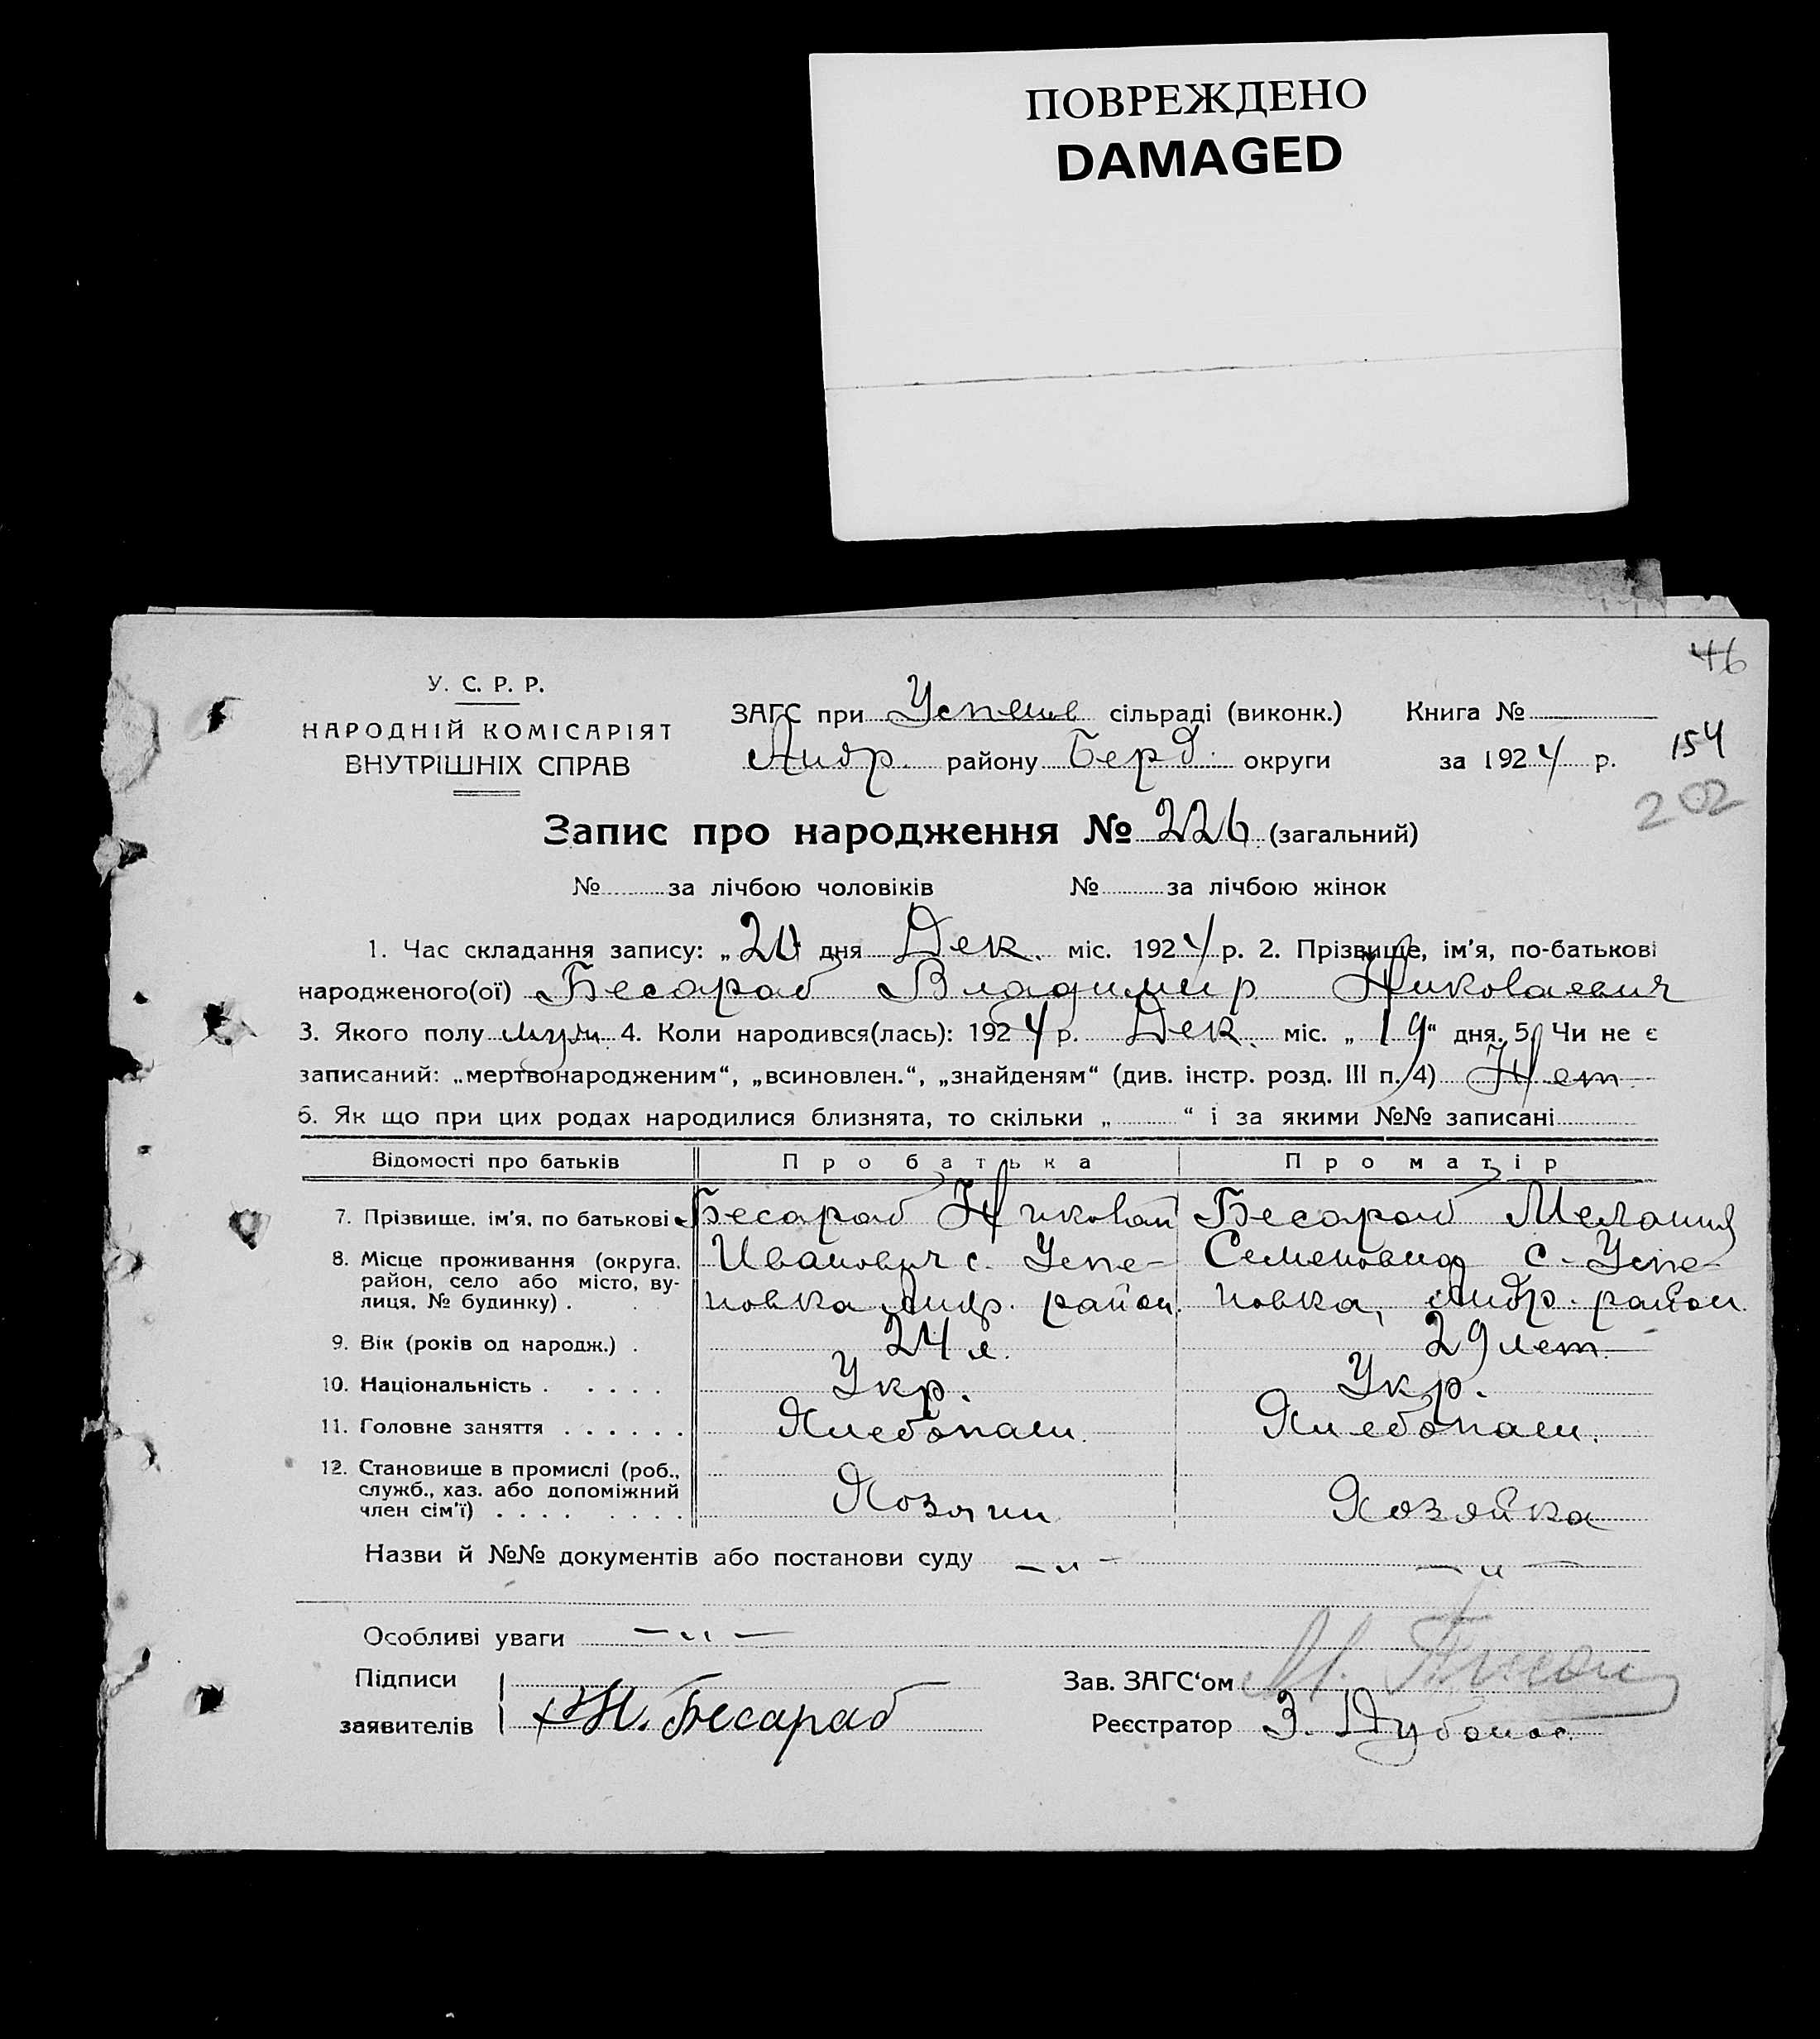 ПОВРЕЖДЕНО
DAMAGED
46
У. С. Р. Р.
НАРОДНІЙ КОМІСАРІЯТ
ВНУТРІШНІХ СПРАВ
ЗАГС при Успенов сільраді (виконк.) Книга №
Андр. району Берд. округи за 1924 р.
154
202
Запис про народження № 226 (загальний)
№ за лічбою чоловіків № за лічбою жінок
1. Час складання запису: „20 дня Дек. міс. 1924 р. 2. Прізвище, ім'я, по-батькові
народженого(ої) Бесараб Владимир Николаевич
3. Якого полу муж. 4. Коли народився(лась): 1924 р. Дек. міс. „19“ дня. 5. Чи не є
записаний: „мертвонародженим“, „всиновлен.“, „знайденям“ (див. інстр. розд. III п. 4) Нет
6. Як що при цих родах народилися близнята, то скільки „ “ і за якими №№ записані
Відомості про батьків Про батька Про матір
7. Прізвище, ім'я, по батькові Бесараб Николай Бесараб Мелания
8. Місце проживання (округа, Иванович с. Успе- Семеновна с. Успе-
район, село або місто, ву-
лиця, № будинку) . новка Андр. район. новка, Андр. район.
9. Вік (років од народж.) . 24 л. 29 лет.
10. Національність . . . . . Укр. Укр.
11. Головне заняття . . . . . . Хлебопаш. Хлебопаш.
12. Становище в промислі (роб.,
служб., хаз. або допоміжний
член сім'ї) . . . . . . . . Хозяин Хозяйка
Назви й №№ документів або постанови суду — „ — — „ —
Особливі уваги — „ —
Підписи
заявителів Н. Бесараб
Зав. ЗАГС‘ом М.
Реєстратор З.